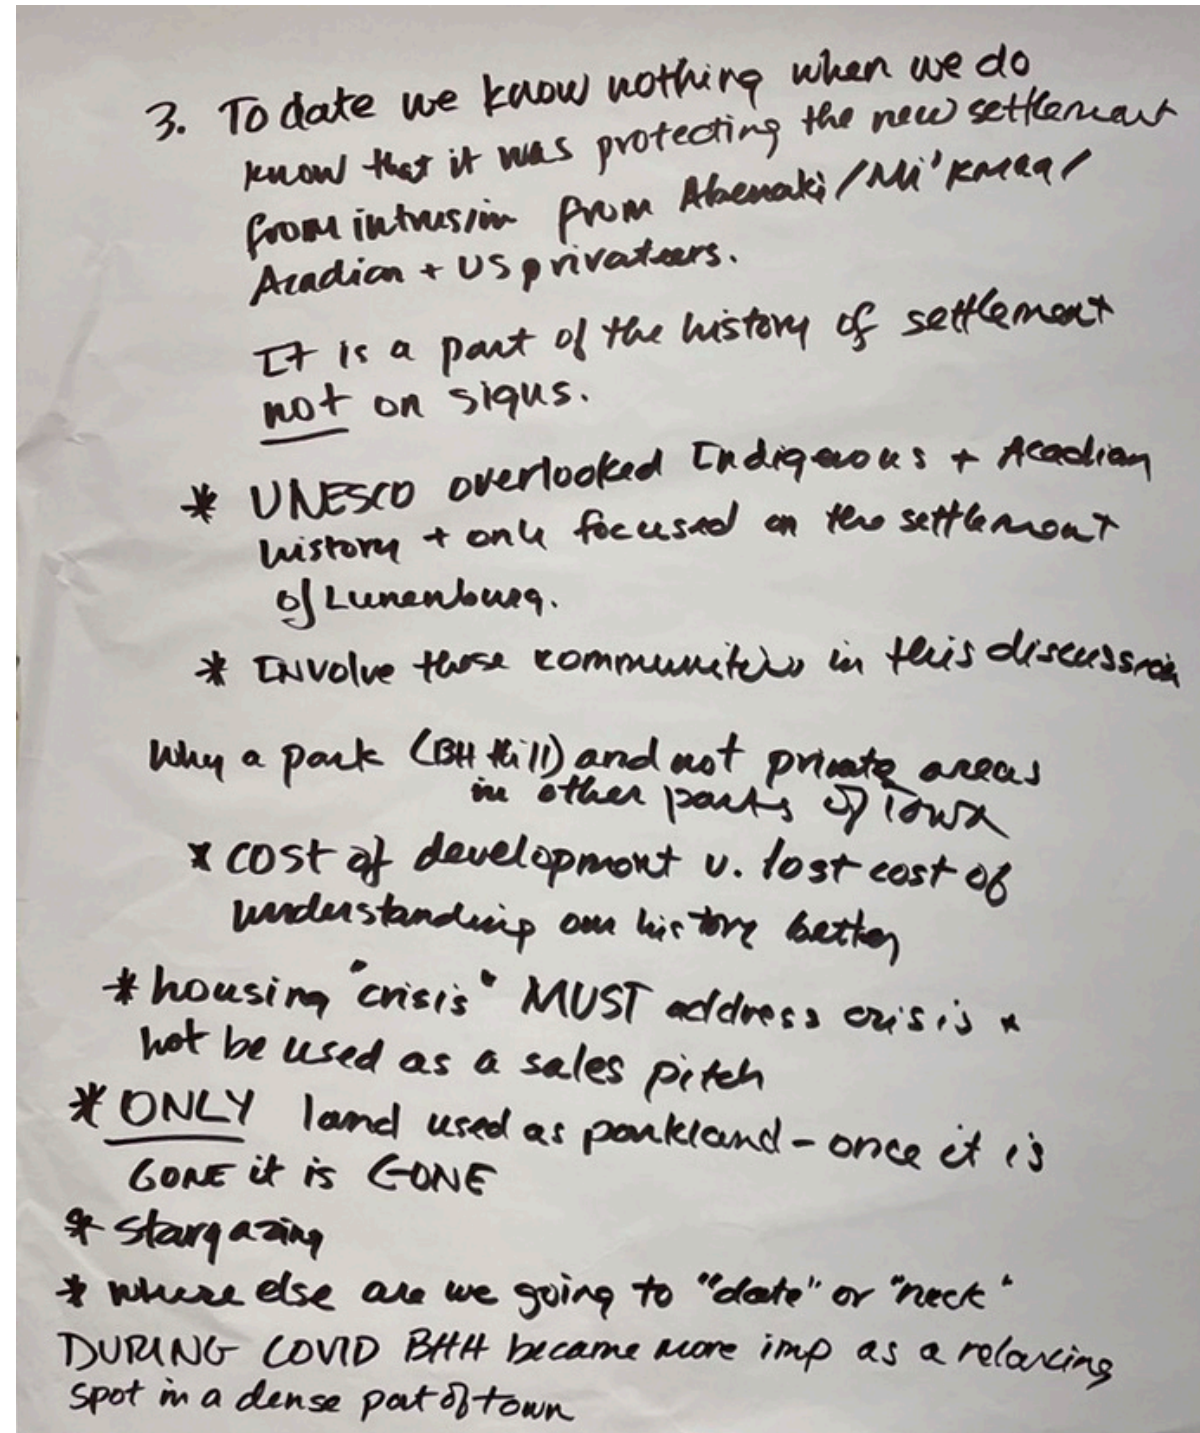 3. To date we know nothing when we do
know that it was protecting the new settlement
from intrusion from Abenaki/Mi'kmaq/
Acadian + US privateers.
It is a part of the history of settlement
not on signs.
* UNESCO overlooked Indigenous + Acadian
history + only focused on the settlement
of Lunenburg.
* Involve those communities in this discussion
Why a park (BH Hill) and not private areas
in other parts of Town
* cost of development v. lost cost of
understanding our history better
* housing "crisis" MUST address crisis +
not be used as a sales pitch
* ONLY land used as parkland - once it is
GONE it is GONE
* stargazing
* where else are we going to "date" or "neck"
DURING COVID BHH became more imp as a relaxing
spot in a dense part of town